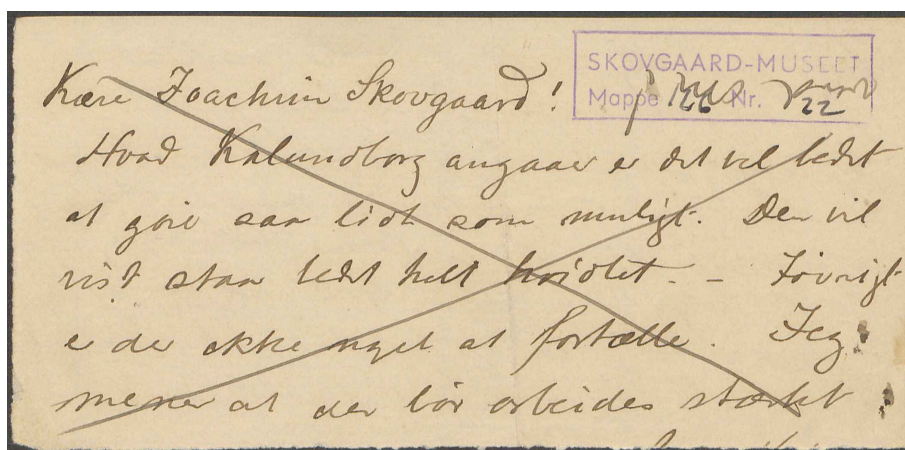 SKOVGAARD-MUSEET
Mappe 166 Nr. 22
Kære Joachim Skovgaard!
Hvad Kalundborg angaaer er det vel bedst
at gøre saa lidt som muligt. Den vil
vist staa bedst helt hvidtet. – Iøvrigt
er der ikke noget at fortælle. Jeg
mener at der bør arbeides stærkt